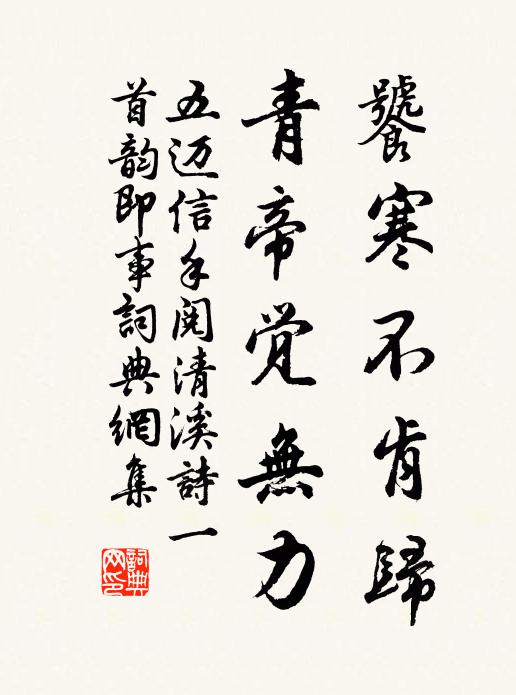 饕寒不肯歸
青帝覺無力
五迈信手閱清溪詩一
首韵即事詞典網集
詞典
网印